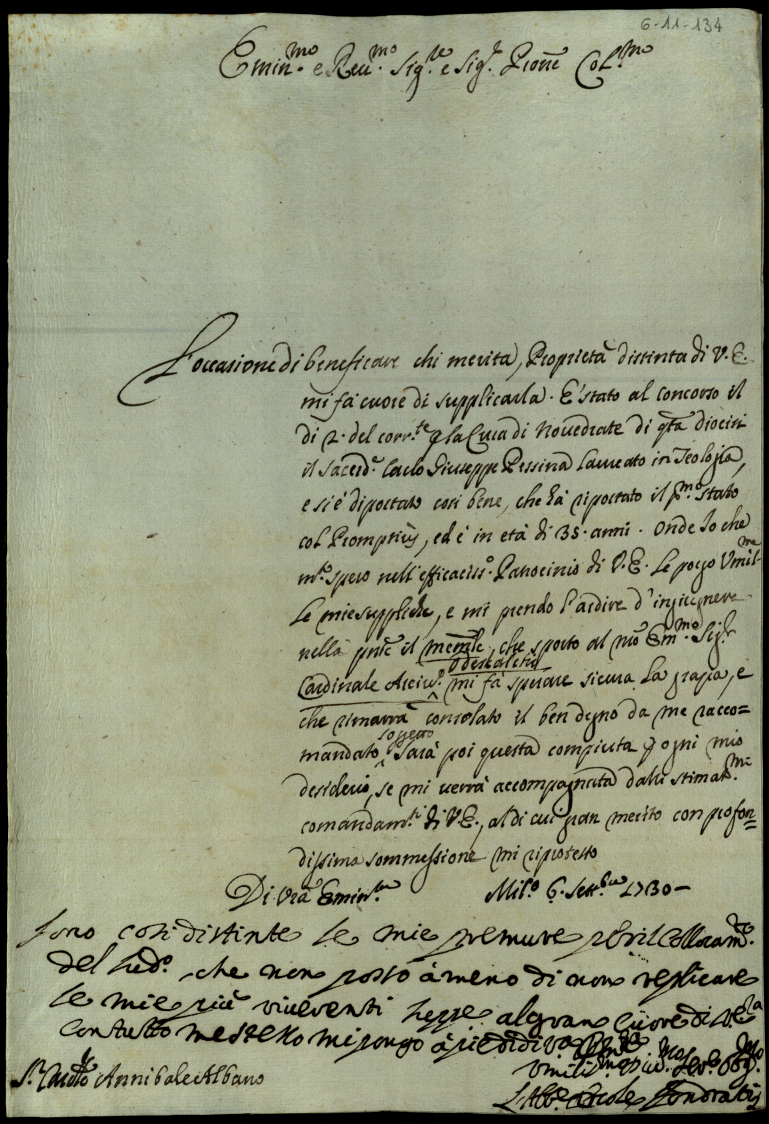 6-11-134
Emin.mo e Reu.mo Sig.re e Sig.r Prone Col.mo
L'occasione di beneficare chi merita, Proprietà distinta di V.E.
mi fà cuore di supplicarla. E' stato al concorso il
dì 2. del corr.te p la Cura di Nouedrate di qta diocesi
il Sacerd.e Carlo Giuseppe Pessina Laureato in Teologia,
e si è diportato cosi bene, che hà riportato il p.mo stato
col Promptius, ed è in età di 35. anni. Onde Io che
m.to spero nell'efficaciss.o Patrocinio di V.E. Le porgo Vmil.me
Le mie suppliche, e mi prendo l'ardire d'ingiugnere
nella pnte il memle, che sporto al nro Em.mo Sig.r
Cardinale Arciu.o Odescalchi mi fà sperare sicura La grazia, e
che rimarrà consolato il ben degno da me racco=
mandato soggetto. Sarà poi questa compiuta p ogni mio
desiderio, se mi uerrà accompagnata dalli stimat.mi
comandam.ti di V.E., al di cui gran merito con profon=
dissima sommessione mi riprotesto
Di Vra Emin.za Mil.o 6. Sett.bre 1730-
sono cosi distinte le mie premure per il Collocam.to
del sud.o, che non posso à meno di non replicare
le mie più riuerenti al gran Cuore di V.E.za
con tutto me stesso mi pongo à piedi di V.a
Vmiliss.mo Diu.mo Ser.e Obb.mo
S.r Card.le Annibale Albano
L'Abb.e Ercole